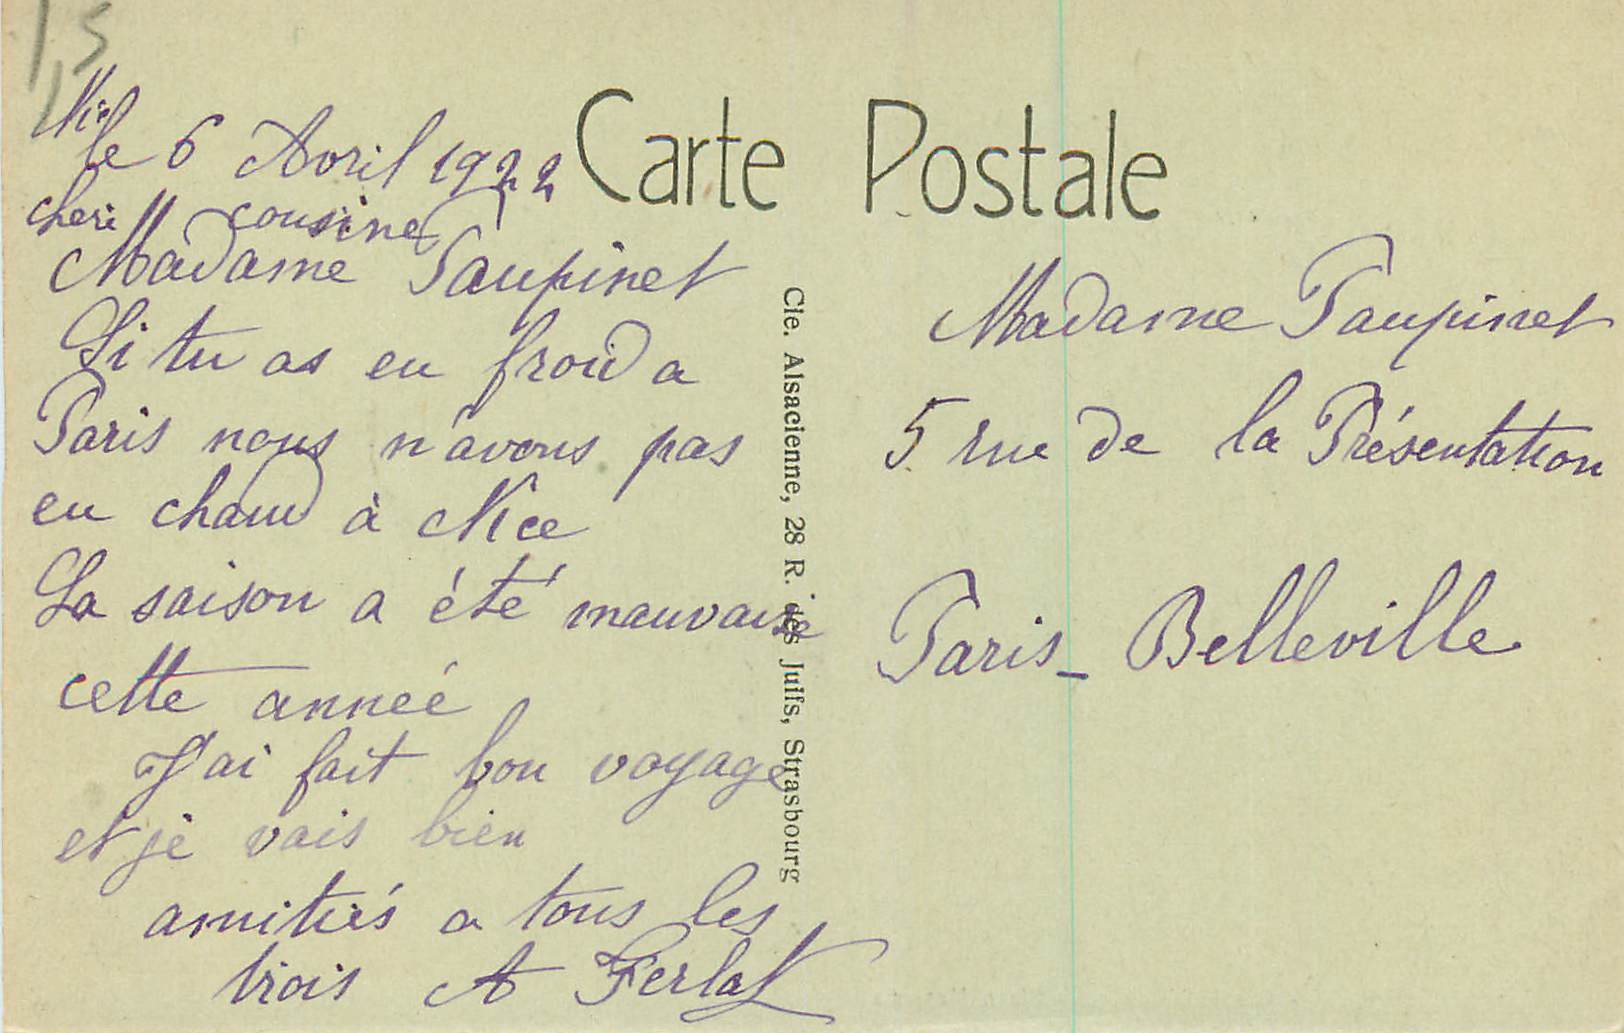 le 6 Avril 1922
cheri cousine
Madame Paupinet
Si tu as eu froid a
Paris nous n'avons pas
eu chaud à Nice
La saison a été mauvaise
cette anneé
J'ai fait bon voyage
et je vais bien
amitiés a tous les
trois A Ferlat
Carte Postale
Cie. Alsacienne, 28 R. des Juifs, Strasbourg
Madame Paupinet
5 rue de la Présentation
Paris - Belleville